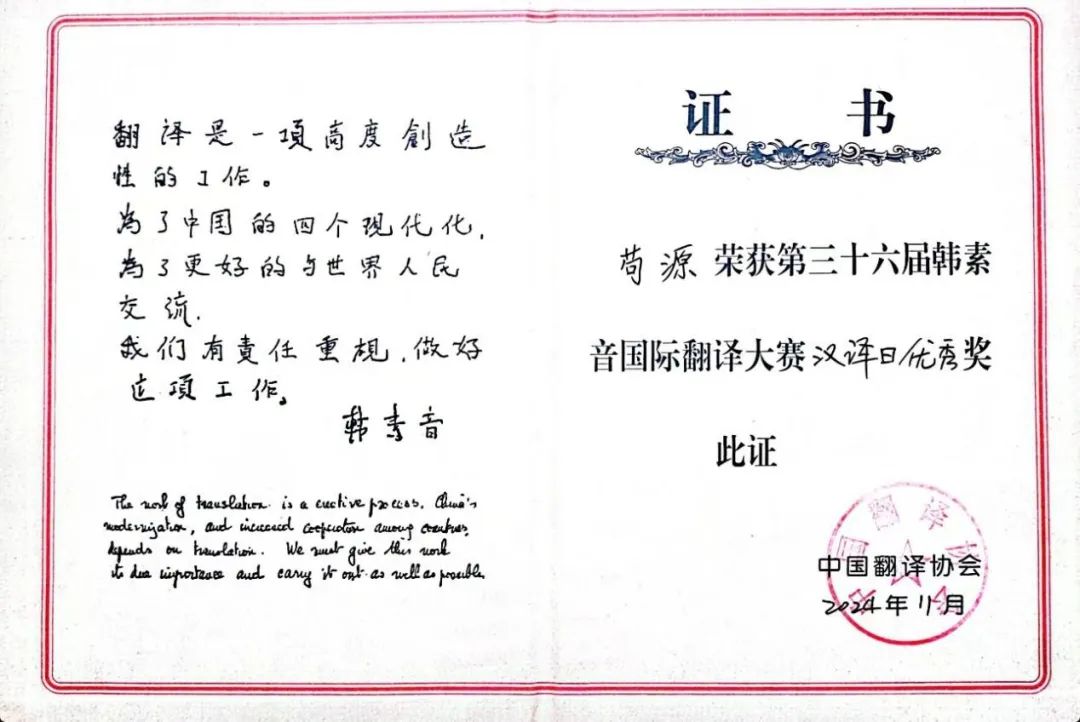 翻译是一項高度創造
性的工作。
為了中国的四个现代化，
為了更好的与世界人民
交流，
我们有責任重視，做好
这項工作。
韩素音
The work of translation is a creative process. China's
modernization, and increased cooperation among countries,
depends on translation. We must give this work
its due importance and carry it out as well as possible.
证书
苟源 荣获第三十六届韩素
音国际翻译大赛汉译日优秀奖
此证
中国翻译协会
中国翻译协会
2024年11月